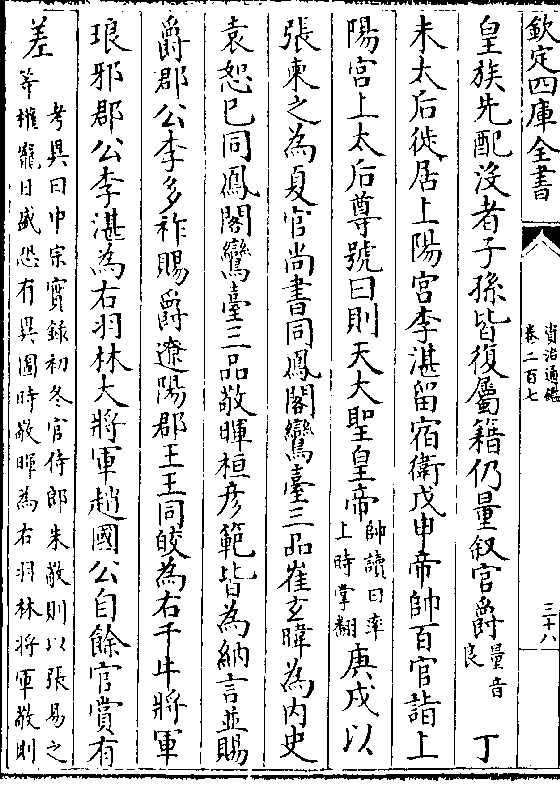 欽定四庫全書
資治通鑑
卷二百七
三十八
皇族先配没者子孫皆復屬籍仍量叙官爵量音良丁
未太后徙居上陽宮李湛留宿衛戊申帝帥百官詣上
陽宮上太后尊號曰則天大聖皇帝帥讀曰率上時掌翻庚戌以
張柬之為夏官尚書同鳳閣鸞臺三品崔玄暐為内史
袁恕已同鳳閣鸞臺三品敬暉桓彦範皆為納言並賜
爵郡公李多祚賜爵遼陽郡王王同皎為右千牛將軍
琅邪郡公李湛為右羽林大將軍趙國公自餘官賞有
差考異曰中宗實錄初冬官侍郎朱敬則以張易之
等權寵日盛恐有異圖時敬暉為右羽林將軍敬則